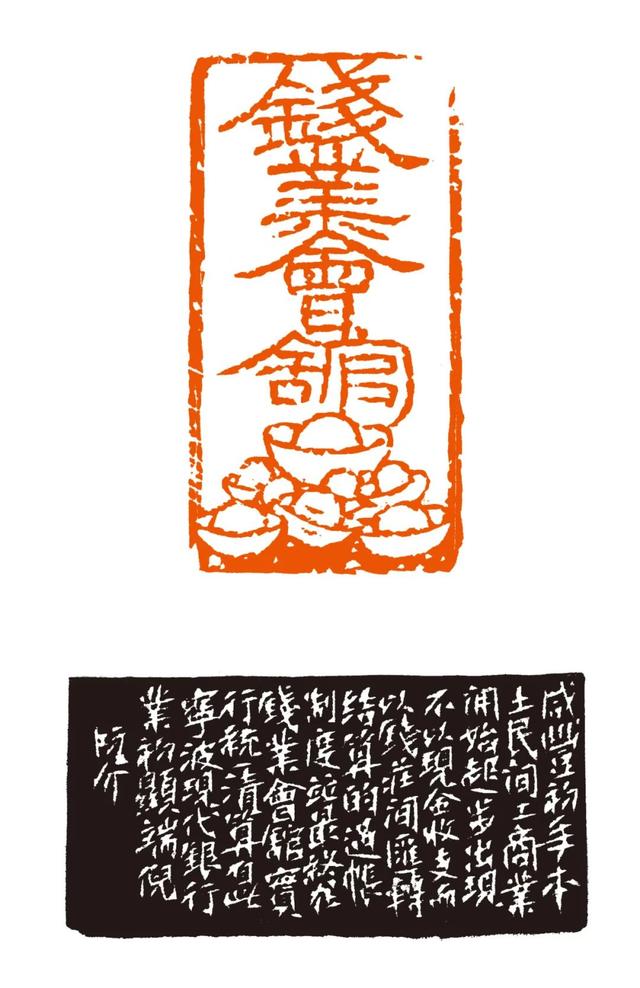 錢業會館
咸豐初年本
土民间工商業
始起步出現
不以現金收支而
以錢莊间匯轉
结算的過帳
制度最終在
錢業會館實
行統一清算自此
寧波現代銀行
業初顯端倪